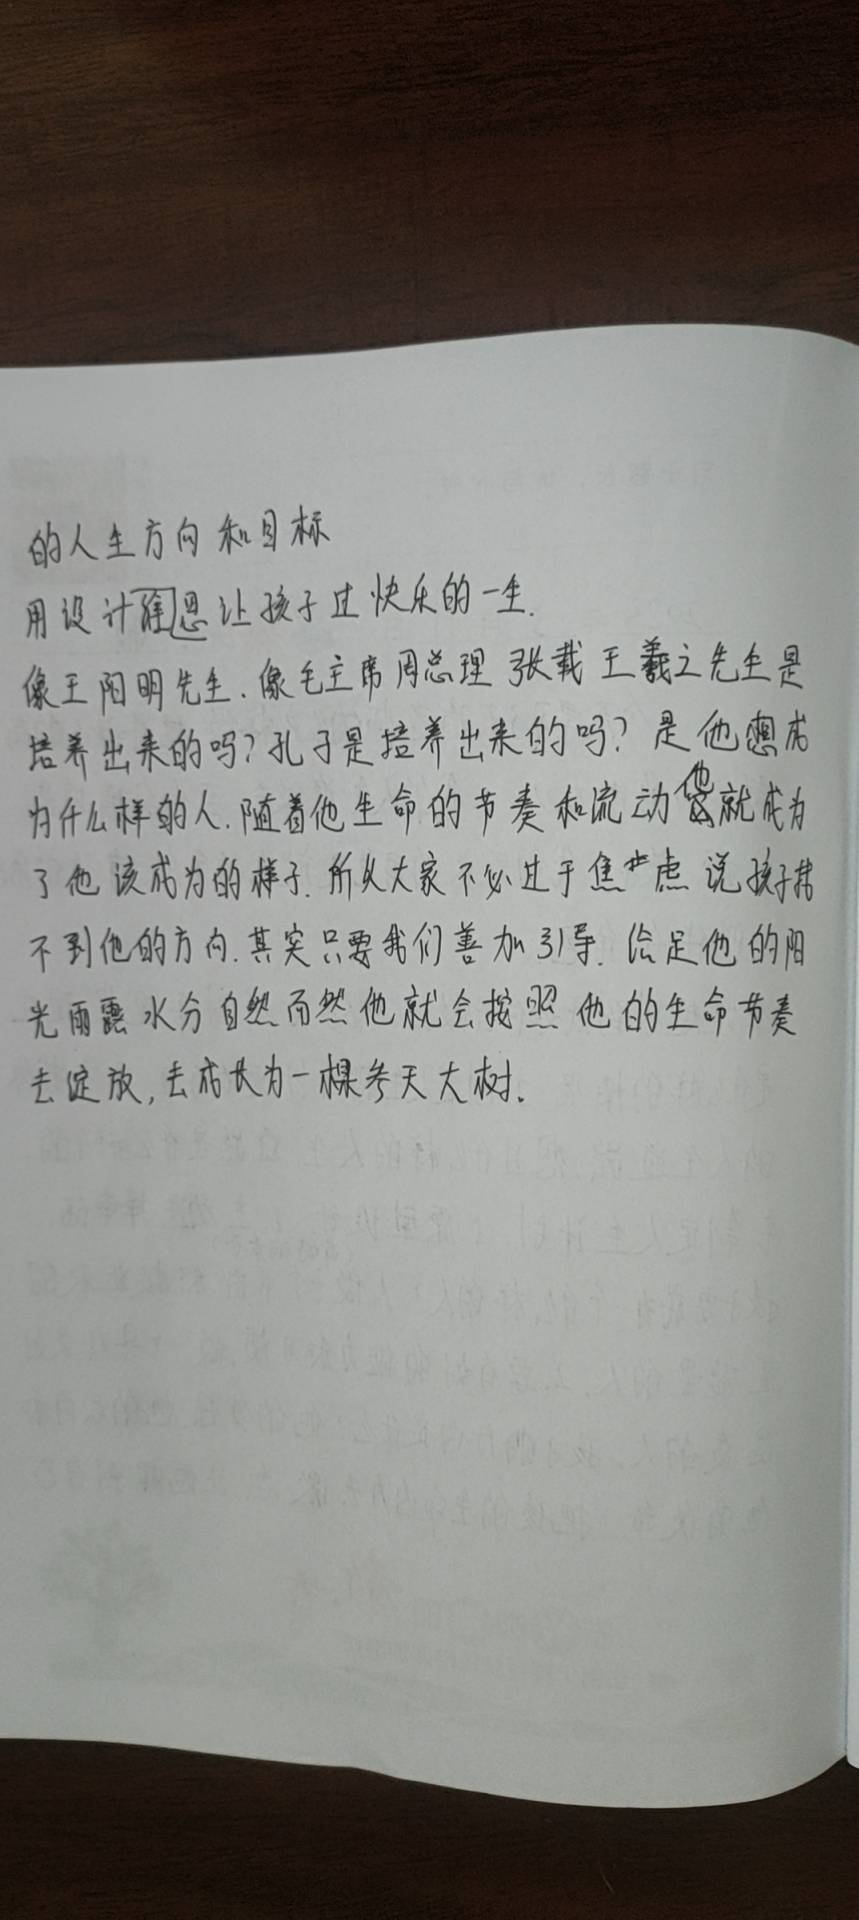 的人生方向和目标
用设计思让孩子过快乐的一生.
像王阳明先生.像毛主席周总理 张载 王羲之先生是
培养出来的吗?孔子是培养出来的吗?是他想成
为什么样的人.随着他生命的节奏和流动他就成为
了他该成为的样子.所以大家不必过于焦虑说孩子找
不到他的方向.其实只要我们善加引导.给足他的阳
光雨露水分自然而然他就会按照他的生命节奏
去绽放,去成长为一棵参天大树.